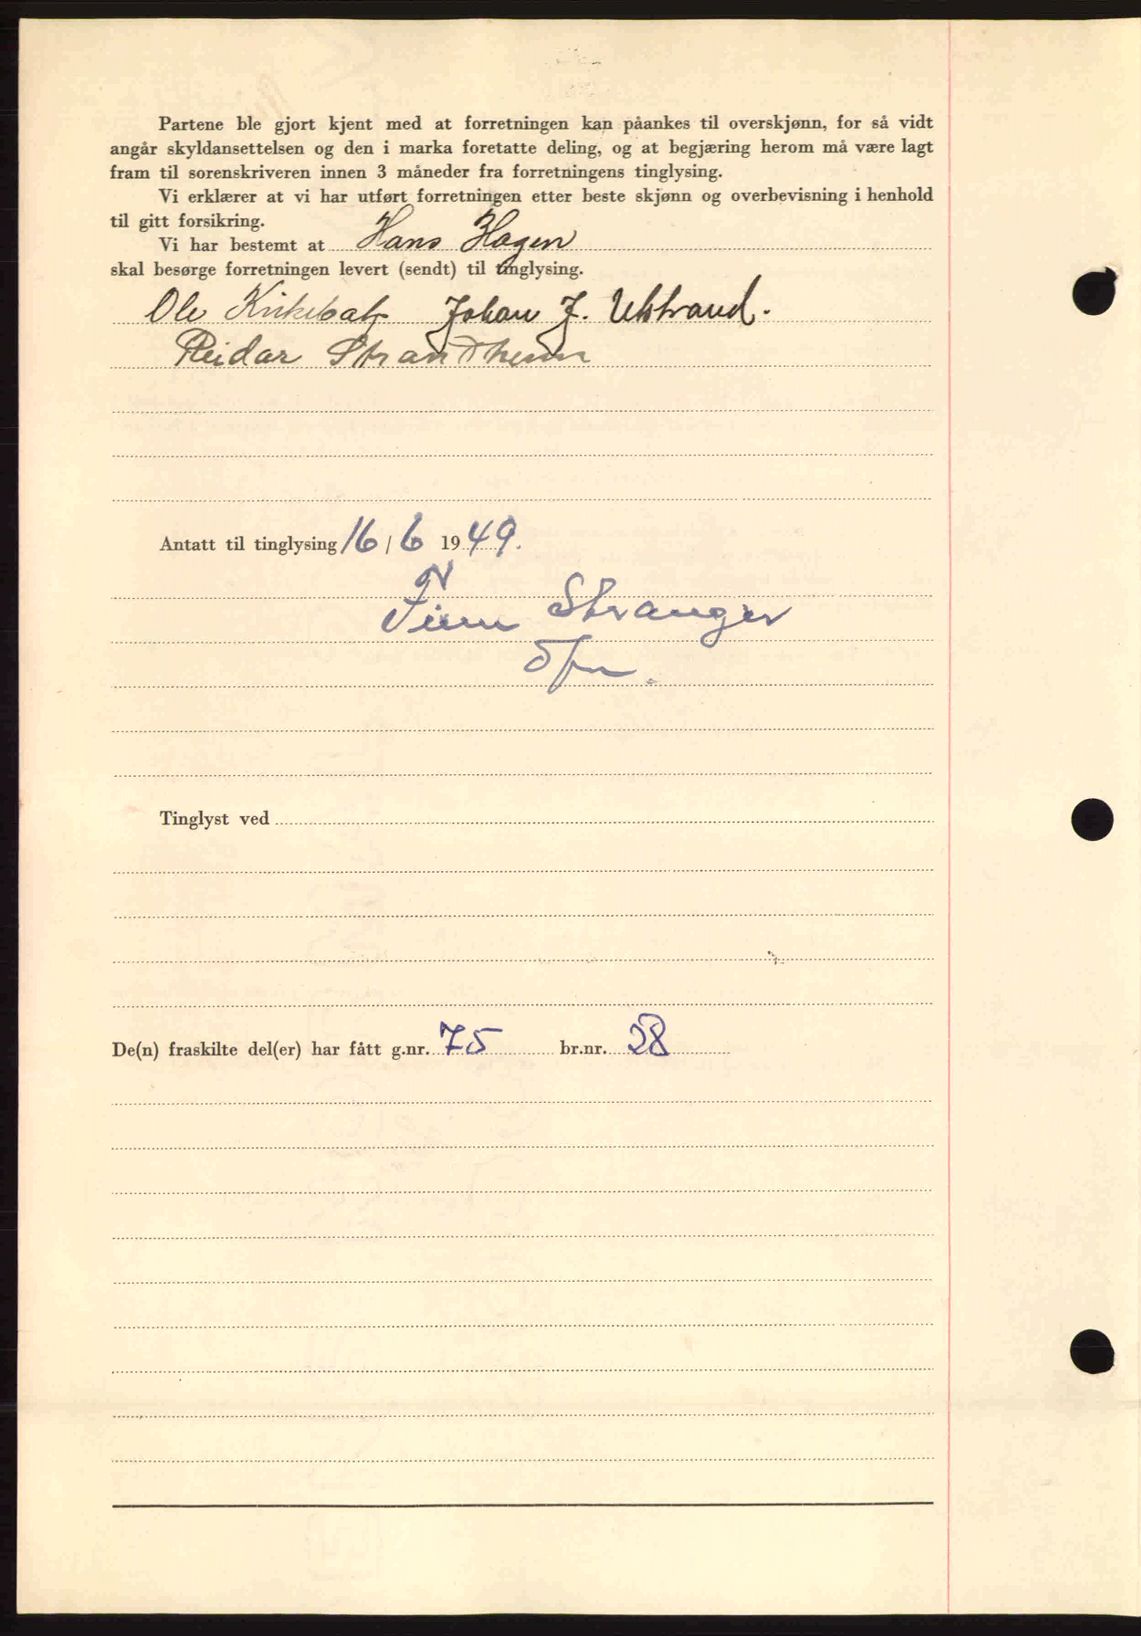 Partene ble gjort kjent med at forretningen kan påankes til overskjønn, for så vidt
angår skyldansettelsen og den i marka foretatte deling, og at begjæring herom må være lagt
fram til sorenskriveren innen 3 måneder fra forretningens tinglysing.
Vi erklærer at vi har utført forretningen etter beste skjønn og overbevisning i henhold
til gitt forsikring.
Vi har bestemt at Hans Hagen
skal besørge forretningen levert (sendt) til tinglysing.
Ole Johan J. Ulstrand.
Reidar Strandheim
Antatt til tinglysing 16/6 1949.
Finn Stranger
Tinglyst ved
De(n) fraskilte del(er) har fått g.nr. 75 br.nr. 28